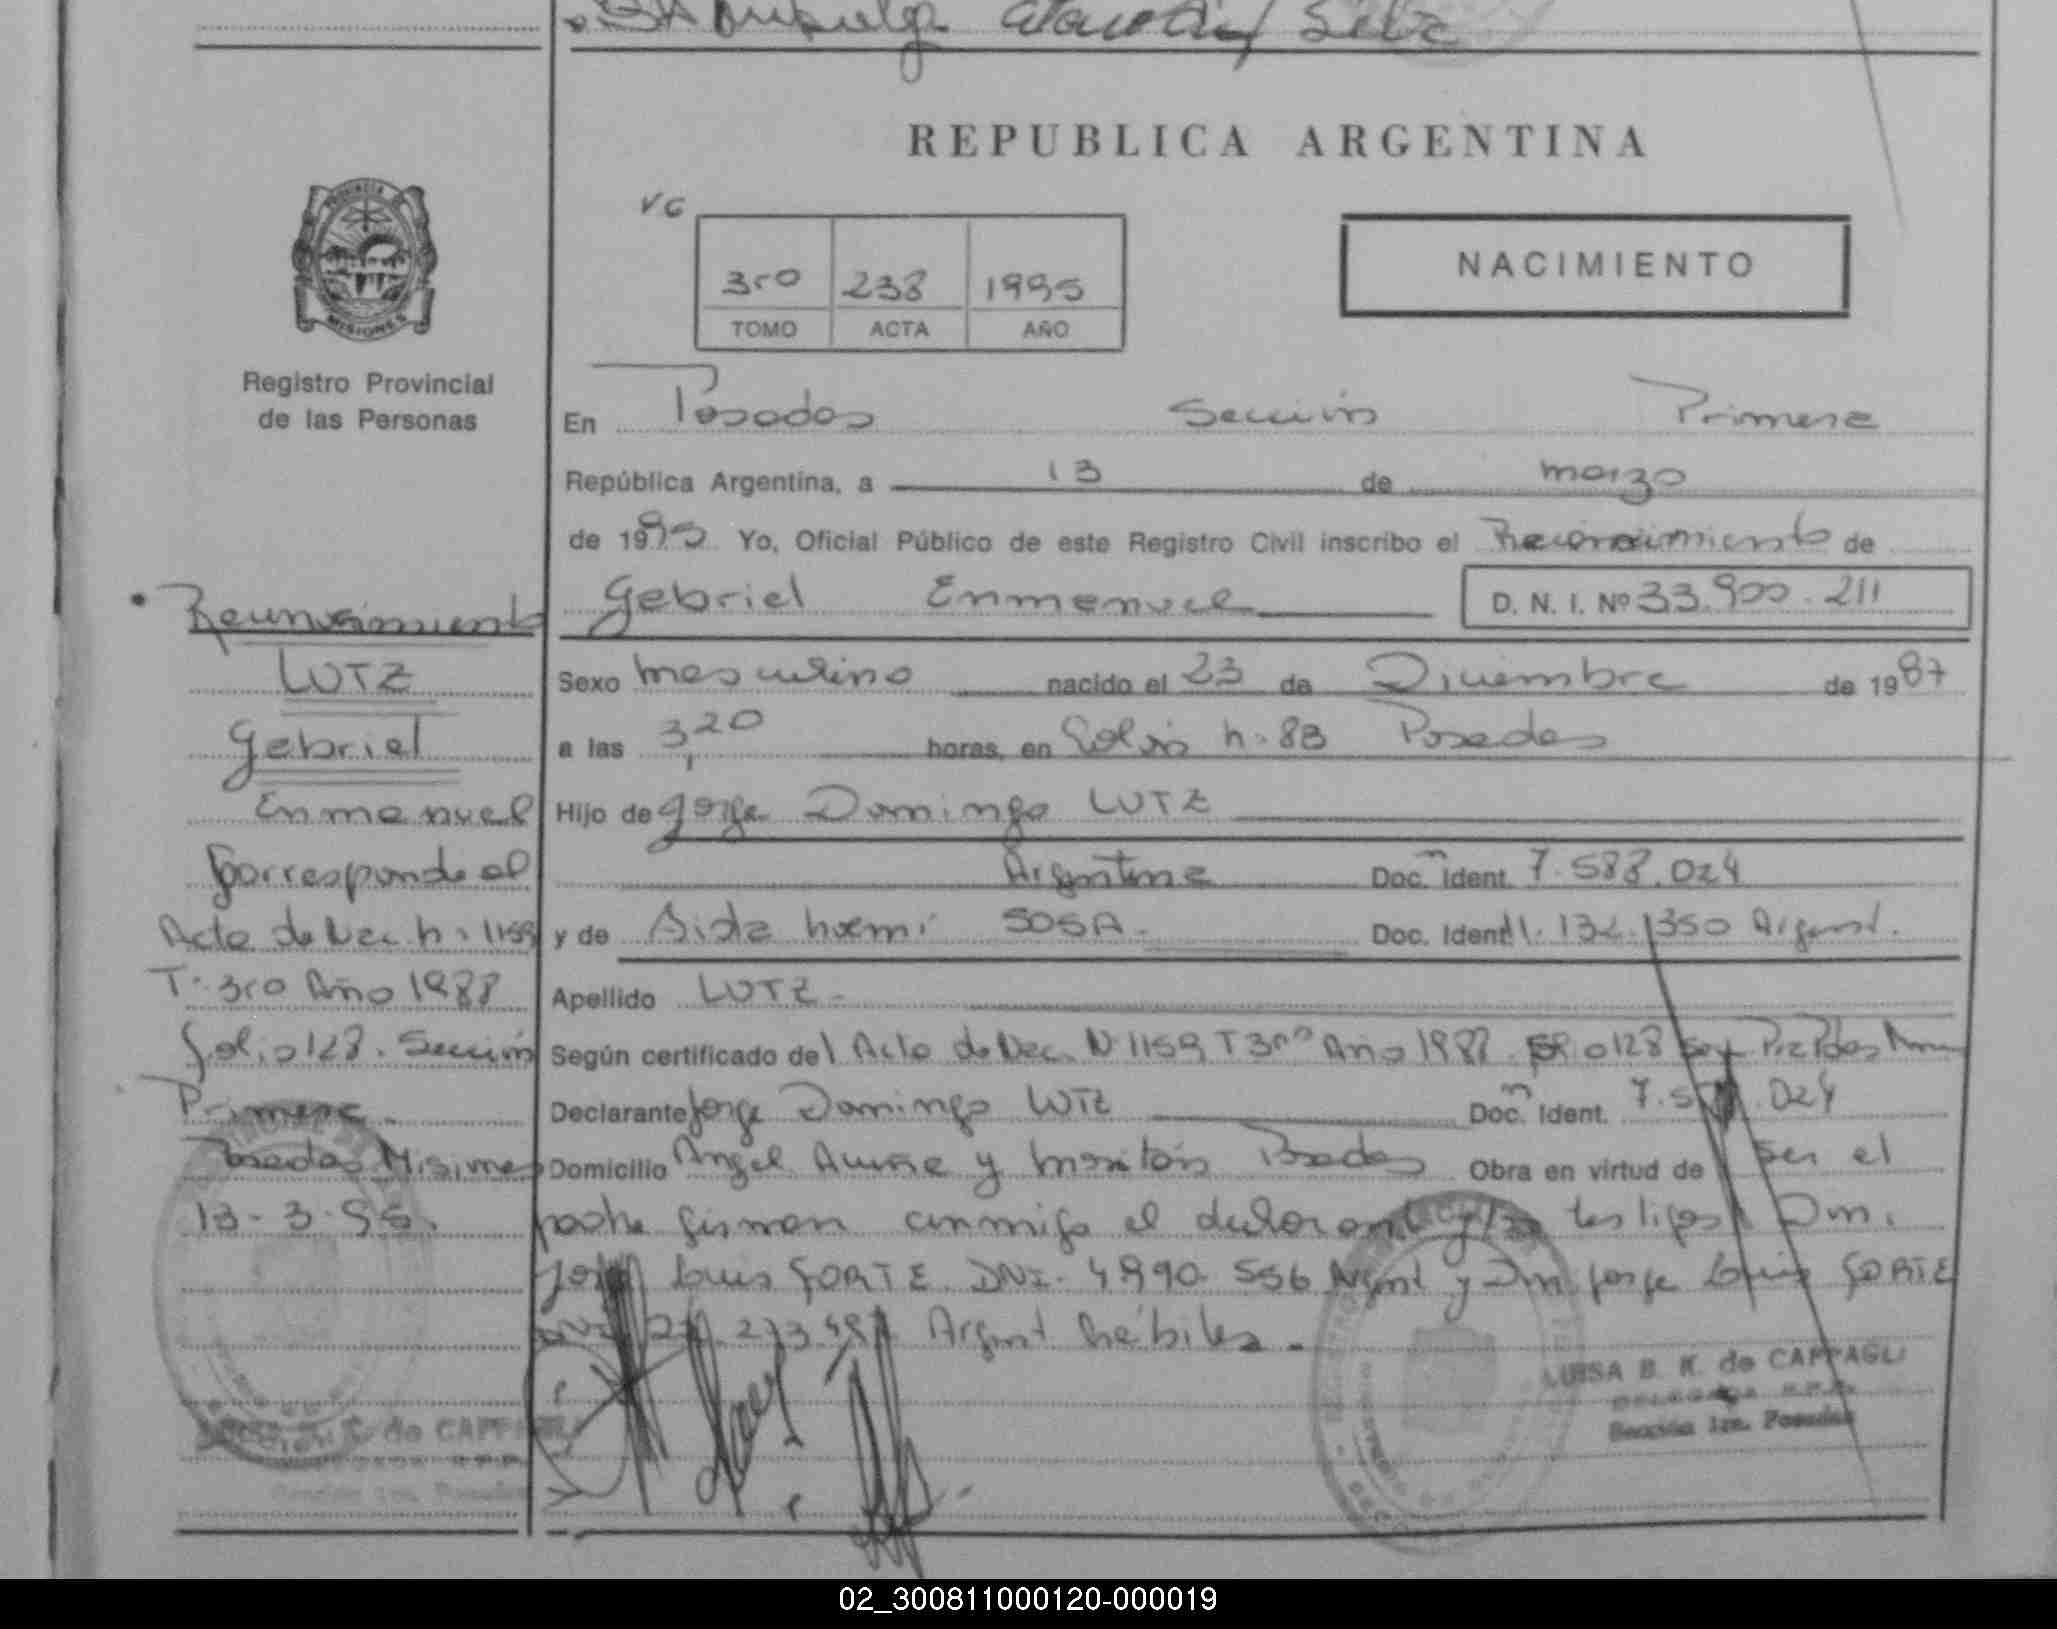 REPUBLICA ARGENTINA
PROVINCIA DE
MISIONES
Registro Provincial
de las Personas
VG
3ro 238 1995
TOMO ACTA AÑO
NACIMIENTO
En Posadas Sección Primera
República Argentina, a 13 de marzo
de 1995 Yo, Oficial Público de este Registro Civil inscribo el Reconocimiento de
Gabriel Enmanuel D. N. I. Nº 33.900.211
Sexo masculino nacido el 23 de Diciembre de 1987
a las 3,20 horas, en Colón n. 83 Posadas
Hijo de Jorge Domingo LUTZ
Argentina Doc. Ident. 7.588.024
y de Aida Noemi SOSA Doc. Ident. 11.132.350 Argent.
Apellido LUTZ
Según certificado del Acta de Nac. N 1159 T 3ro Año 1988 128
Declarante Jorge Domingo LUTZ Doc. Ident. 7.5 .024
Domicilio Angel Acuña y Posadas Obra en virtud de ser el
padre firman conmigo el declarante y los testigos Dn.
Luis FORTE DNI. 4990.556 Argent y Dn Jorge Luis FORTE
Argent hábiles.
Reconocimiento
LUTZ
Gabriel
Enmanuel
Corresponde al
Acta de Nac. n. 1159
T. 3ro Año 1988
Folio 128. Sección
Primera.
Posadas Misiones
13-3-95.
LUISA B. K. de CAPPAGLI
DELEGADA R.P.P.
Sección 1ra. Posadas
de CAPPAGLI
Sección 1ra. Posadas
02_300811000120-000019